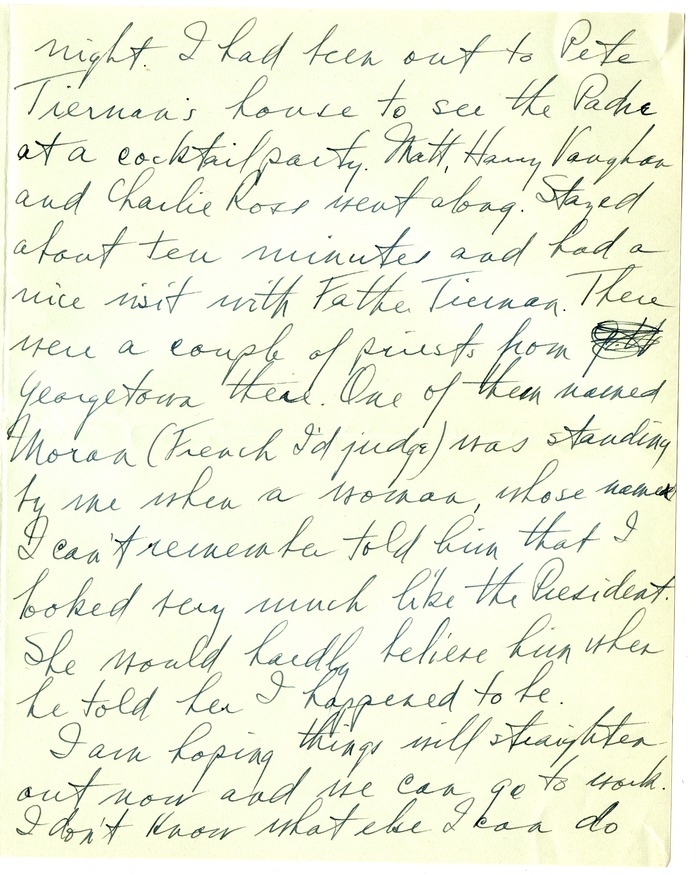 night. I had been out to Pete
Tiernan's house to see the Padre
at a cocktail party. Matt, Harry Vaughan
and Charlie Ross went along. Stayed
about ten minutes and had a
nice visit with Father Tiernan. There
were a couple of priests from
Georgetown there. One of them named
Moran (French I'd judge) was standing
by me when a woman, whose name
I can't remember told him that I
looked very much like the President.
She would hardly believe him when
he told her I happened to be.
I am hoping things will straighten
out now and we can go to work.
I don't know what else I can do